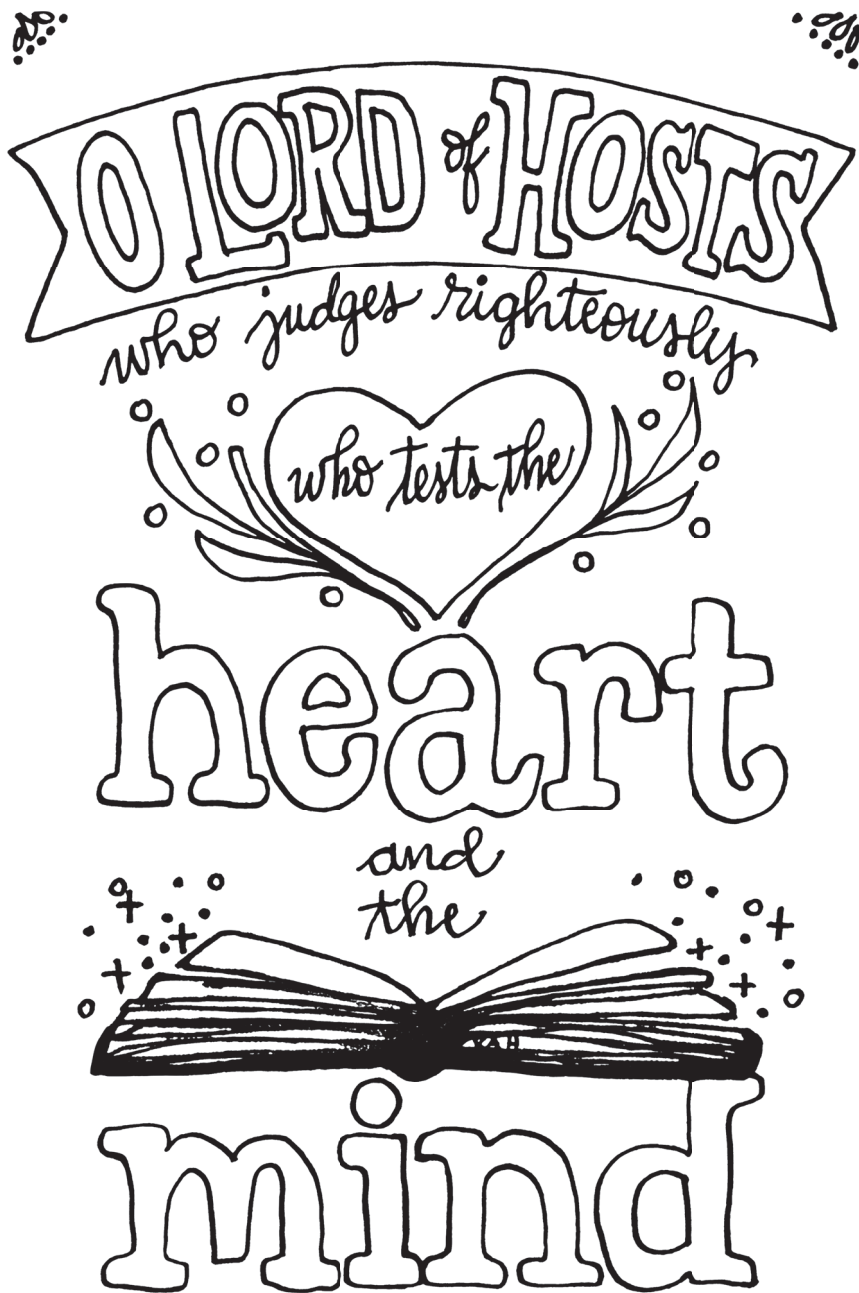 O LORD of HOSTS
who judges righteously
who tests the
heart
and
the
mind